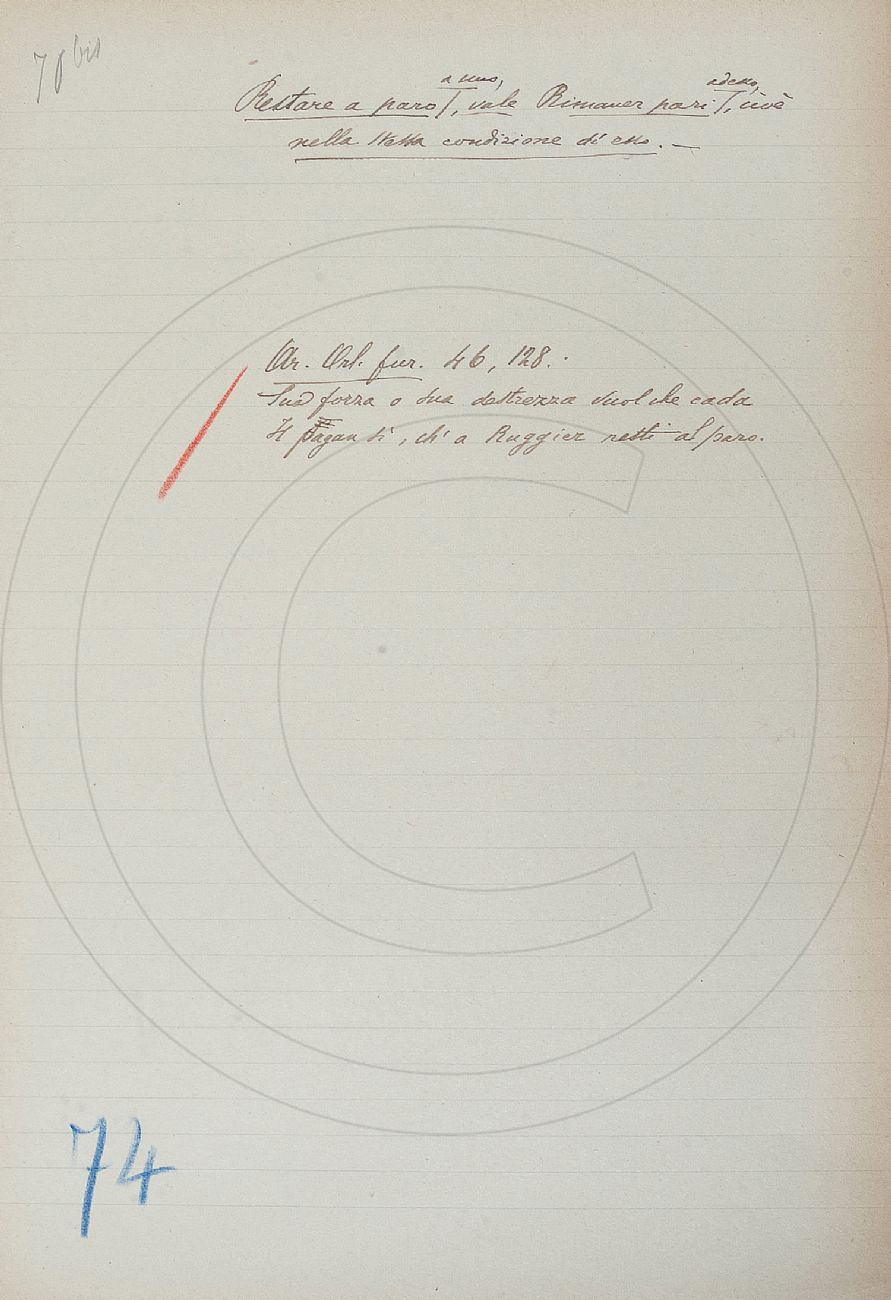 70 bis
Restare a paro a uno, vale Rimaner pari ad esso, cioè
nella stessa condizione di esso. —
Ar. Orl. fur. 46, 128.
Sua forza o sua destrezza vuol che cada
Il pagan sì, ch' a Ruggier resti al paro.
74